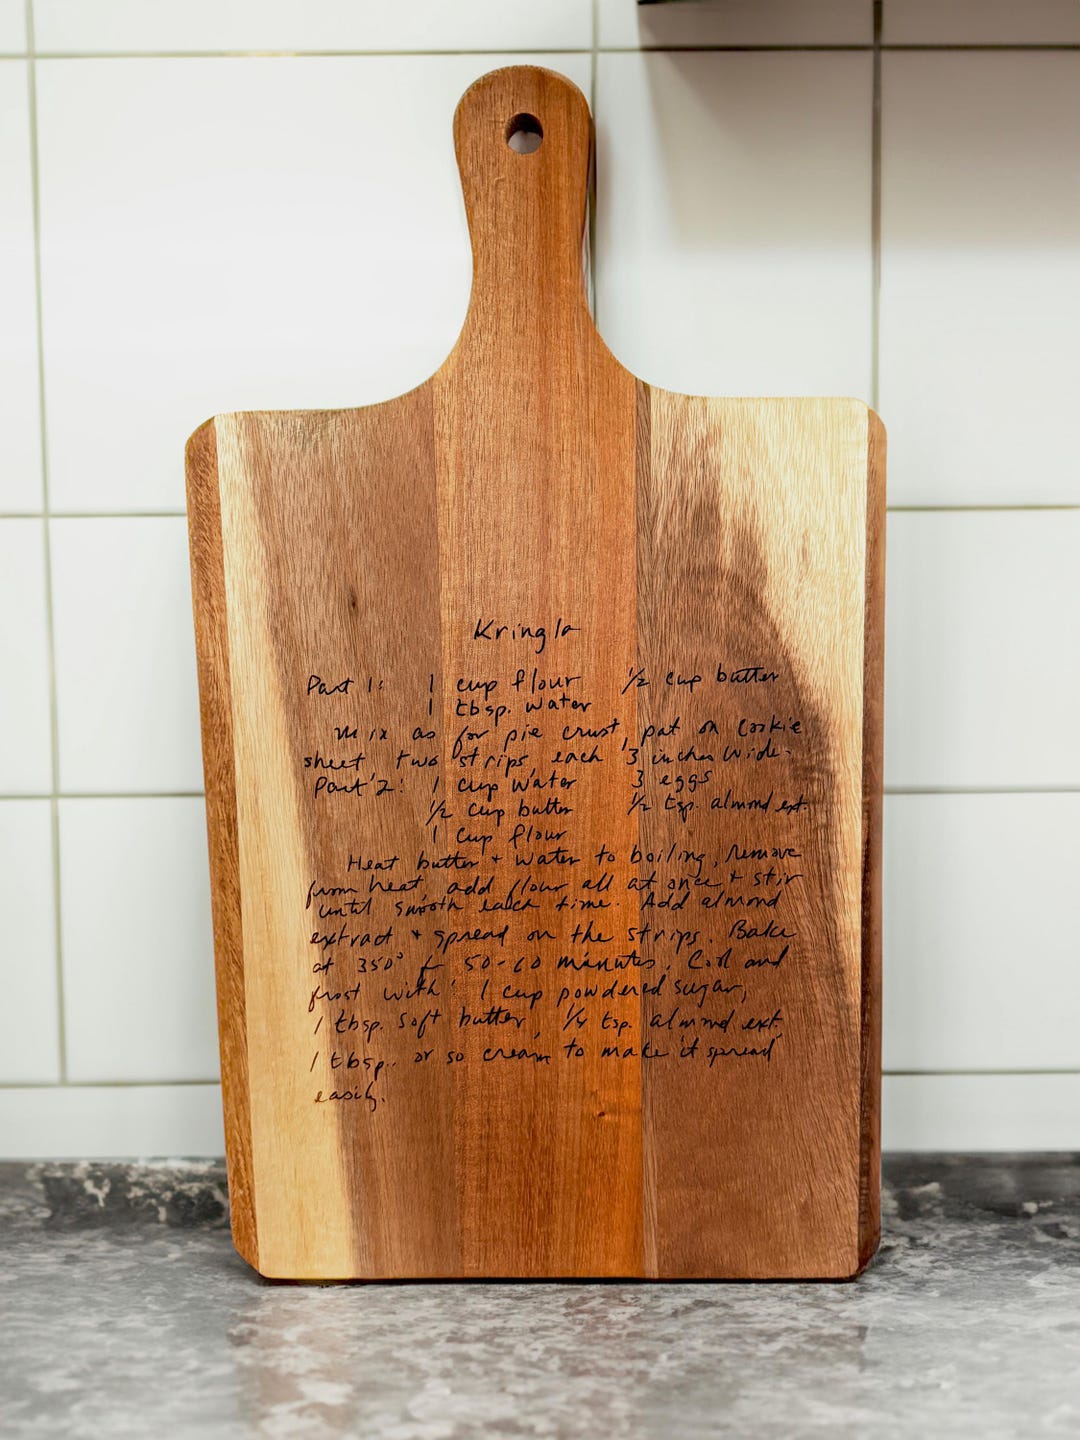 Kringla
Part 1: 1 cup flour ½ cup butter
1 tbsp. water
Mix as for pie crust, pat on cookie
sheet two strips each 3 inches wide.
Part 2: 1 cup water 3 eggs
½ cup butter ½ tsp. almond ext.
1 cup flour
Heat butter + water to boiling, remove
from heat, add flour all at once + stir
until smooth each time. Add almond
extract + spread on the strips. Bake
at 350° for 50-60 minutes. Cool and
frost with: 1 cup powdered sugar,
1 tbsp. soft butter, ¼ tsp. almond ext.
1 tbsp. or so cream to make it spread
easily.